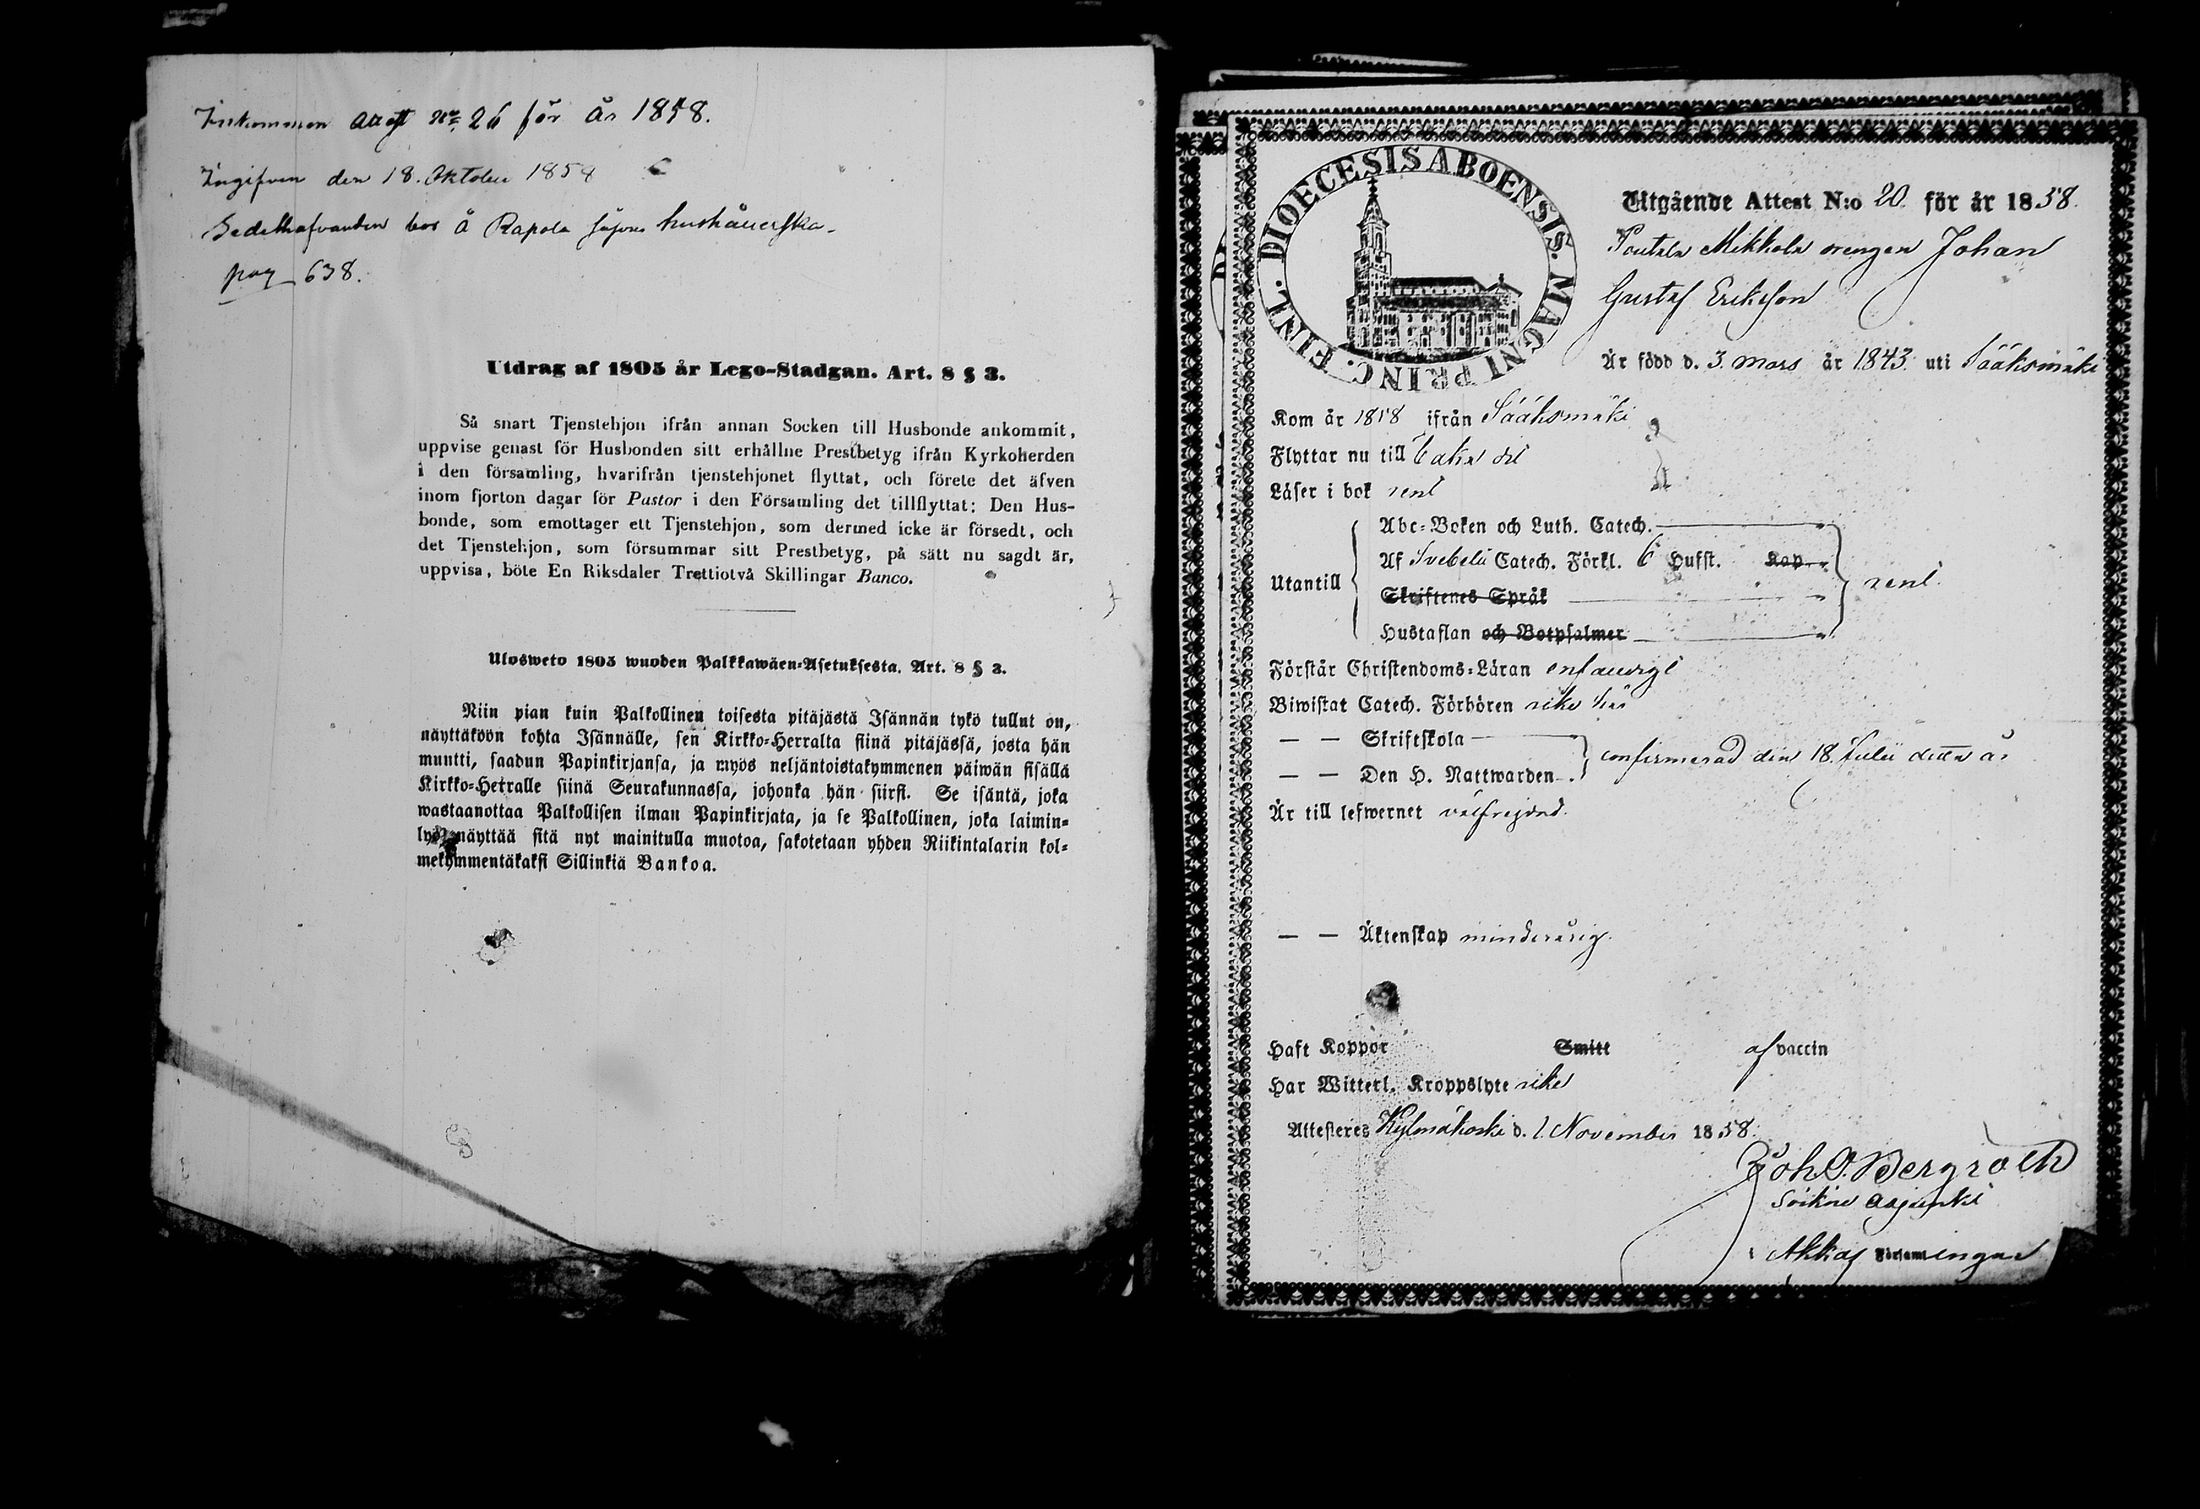 Inkommen Attest No 26 för år 1858.
Ingifven den 18. Oktober 1858
bor å Rapola
pag 638.
Utdrag af 1805 år Lego-Stadgan. Art. 8 § 3.
Så snart Tjenstehjon ifrån annan Socken till Husbonde ankommit,
uppvise genast för Husbonden sitt erhållne Prestbetyg ifrån Kyrkoherden
i den församling, hvarifrån tjenstehjonet flyttat, och förete det äfven
inom fjorton dagar för Pastor i den Församling det tillflyttat: Den Hus-
bonde, som emottager ett Tjenstehjon, som dermed icke är försedt, och
det Tjenstehjon, som försummar sitt Prestbetyg, på sätt nu sagdt är,
uppvisa, böte En Riksdaler Trettiotvå Skillingar Banco.
Ulosweto 1805 wuoden Palkkawäen-Asetuksesta. Art. 8 § 3.
Niin pian kuin Palkollinen toisesta pitäjästä Isännän tykö tullut on,
näyttäköön kohta Isännälle, sen Kirkko-Herralta siinä pitäjässä, josta hän
muutti, saadun Papinkirjansa, ja myös neljäntoistakymmenen päiwän sisällä
Kirkko-Herralle siinä Seurakunnassa, johonka hän siirsi. Se isäntä, joka
wastaanottaa Palkollisen ilman Papinkirjata, ja se Palkollinen, joka laimin-
lyö näyttää sitä nyt mainitulla muotoa, sakotetaan yhden Riikintalarin kol-
mekymmentäkaksi Sillinkiä Bankoa.
DIOECESIS ABOENSIS. MAGNI PRINC. FINL.
Utgående Attest N:o 20. för år 1858.
Mikkola drengen Johan
Gustaf Eriksson
Är född d. 3 mars år 1843. uti Sääksmäki
Kom år 1858 ifrån Sääksmäki
Flyttar nu till
Läser i bok rent
Abc-Boken och Luth. Catech.
Af Svebelii Catech. Förkl. 6 Hufst. Kap.
Utantill
Skriftenes Språk
rent
Hustaflan och Botpsalmer
Förstår Christendoms-Läran enfaldigt
Biwistat Catech. Förhören icke här
— — Skriftskola
confirmerad den 18. Julii detta år
— — Den H. Nattwarden
Är till lefwernet välfrejdad.
— — Äktenskap minderårig.
Haft Koppor Smitt af vaccin
Har Witterl. Kroppslyte icke
Attesteres Kylmäkoski d. 1 November 1858.
Joh. O. Bergroth
Sockne Adjunkt
i Akkas Församlingar